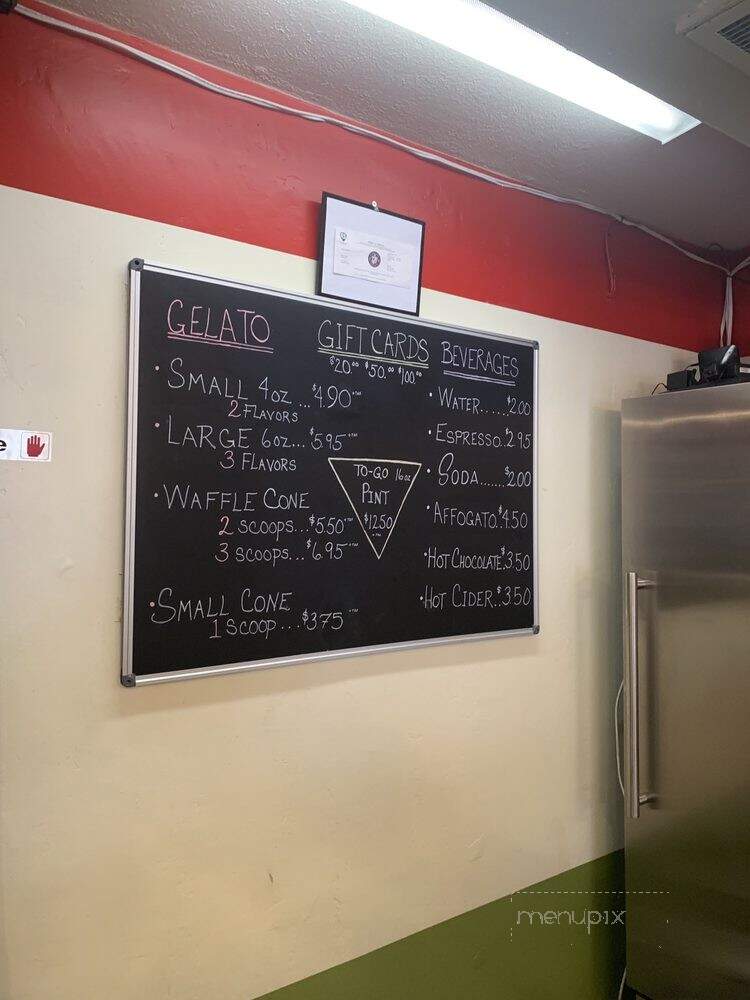 GELATO
SMALL 4oz ... $4.90 +TAX
2 FLAVORS
LARGE 6oz... $5.95 +TAX
3 FLAVORS
WAFFLE CONE
2 SCOOPS... $5.50 +TAX
3 SCOOPS... $6.95 +TAX
SMALL CONE
1 SCOOP.... $3.75 +TAX
GIFT CARDS
$20.00 $50.00 $100.00
TO-GO 16oz
PINT
$12.50
BEVERAGES
WATER..... $2.00
ESPRESSO. $2.95
SODA....... $2.00
AFFOGATO. $4.50
HOT CHOCOLATE. $3.50
HOT CIDER.. $3.50
e
menupix